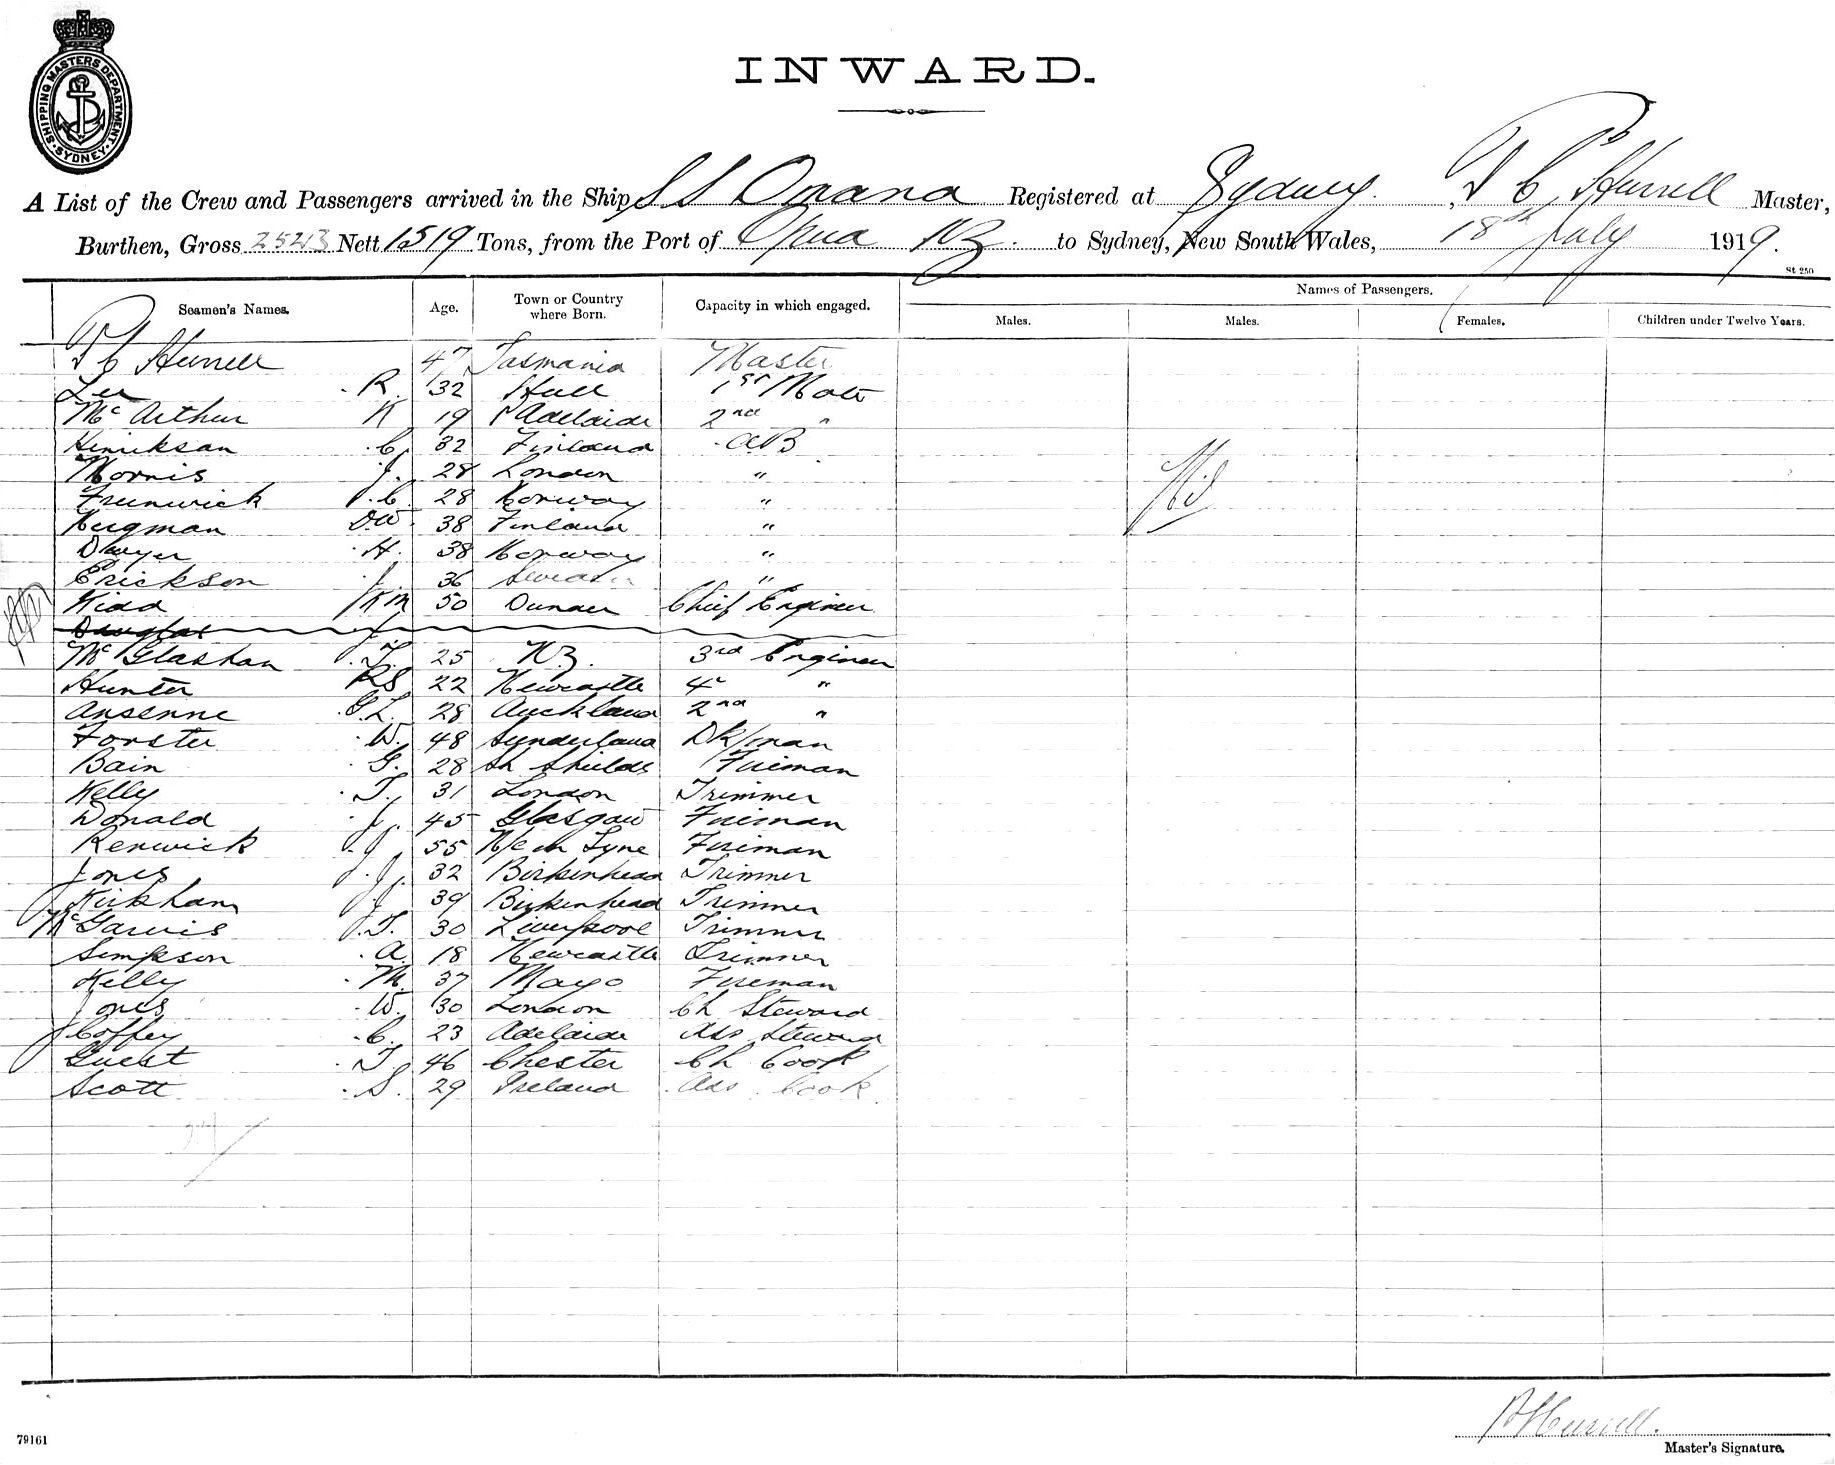 SHIPPING MASTERS DEPARTMENT. SYDNEY.
INWARD.
A List of the Crew and Passengers arrived in the Ship SS Onana Registered at Sydney. P C Hurrell Master,
Burthen, Gross 2543 Nett 1519 Tons, from the Port of Opua NZ. to Sydney, New South Wales, 18th July 1919.
St 250
Seamen's Names. Age. Town or Country where Born. Capacity in which engaged. Names of Passengers.
Males. Males. Females. Children under Twelve Years.
P C Hurrell 47 Tasmania Master
Lee R. 32 Hull 1st Mate
McArthur K 19 Pt Adelaide 2nd "
Hinrikson C. 32 Finland AB
Morris J. 28 London "
Frunwick P.C. 28 Norway "
Nil
Bergman DW. 38 Finland "
Dwyer H. 38 Norway "
Erickson J. 36 Sweden "
Kidd KM 50 Dundee Chief Engineer
Douglas J
McGlashan T. 25 NZ. 3rd Engineer
Hunter RS 22 Newcastle 4th "
Ansenne G.L. 28 Auckland 2nd "
Forster W. 48 Sunderland Dk/man
Bain G. 28 Sh Shields Fireman
Kelly T. 31 London Trimmer
Donald J. 45 Glasgow Fireman
Renwick J 55 N/c on Tyne Fireman
Jones J. 32 Birkenhead Trimmer
Kirkham J 39 Birkenhead Trimmer
McGarvis T. 30 Liverpool Trimmer
Simpson A. 18 Newcastle Trimmer
Kelly M. 37 Mayo Fireman
Jones W. 30 London Ch Steward
Coffey C. 23 Adelaide Ass Steward
Guest T. 46 Chester Ch Cook
Scott S. 29 Ireland Ass Cook
79161
Master's Signature.